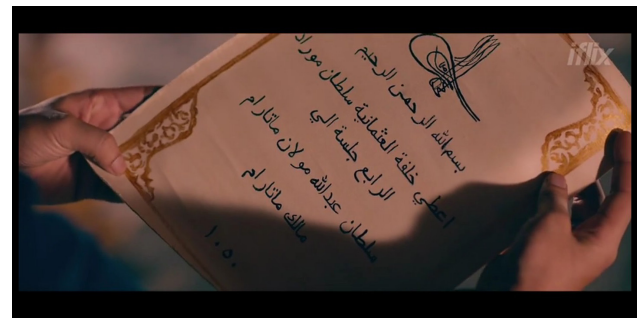 iflix
بسم الله الرحمن الرحيم
اعطي خلفة العثمانية سلطان موراد
الرابع جلسة الي
سلطان عبدالله مولان ماتارام
مالك ماتارام
١٠٥٠